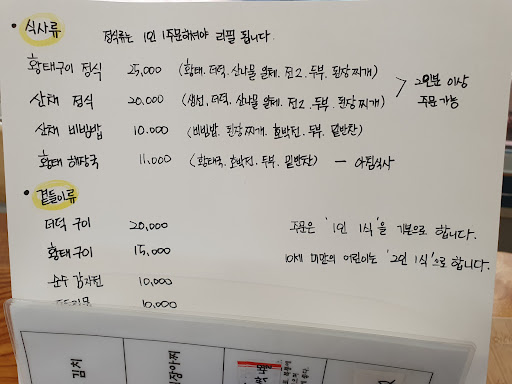 • 식사류 정식류는 1인 1주문하셔야 리필 됩니다.
황태구이 정식 25,000 (황태. 더덕. 산나물 일체. 전2. 두부. 된장찌개)
산채 정식 20,000 (생선, 더덕. 산나물 일체. 전2. 두부. 된장찌개)
> 2인분 이상
주문가능
산채 비빔밥 10.000 (비빔밥. 된장찌개. 호박전. 두부. 밑반찬)
황태 해장국 11,000 (황태국. 호박전. 두부. 밑반찬) — 아침식사
• 곁들이류
더덕 구이 20,000
황태구이 15,000
순수 감자전 10,000
10,000
주문은 '1인 1식'을 기본으로 합니다.
10세 미만의 어린이는 '2인 1식'으로 합니다.
김치
장아찌